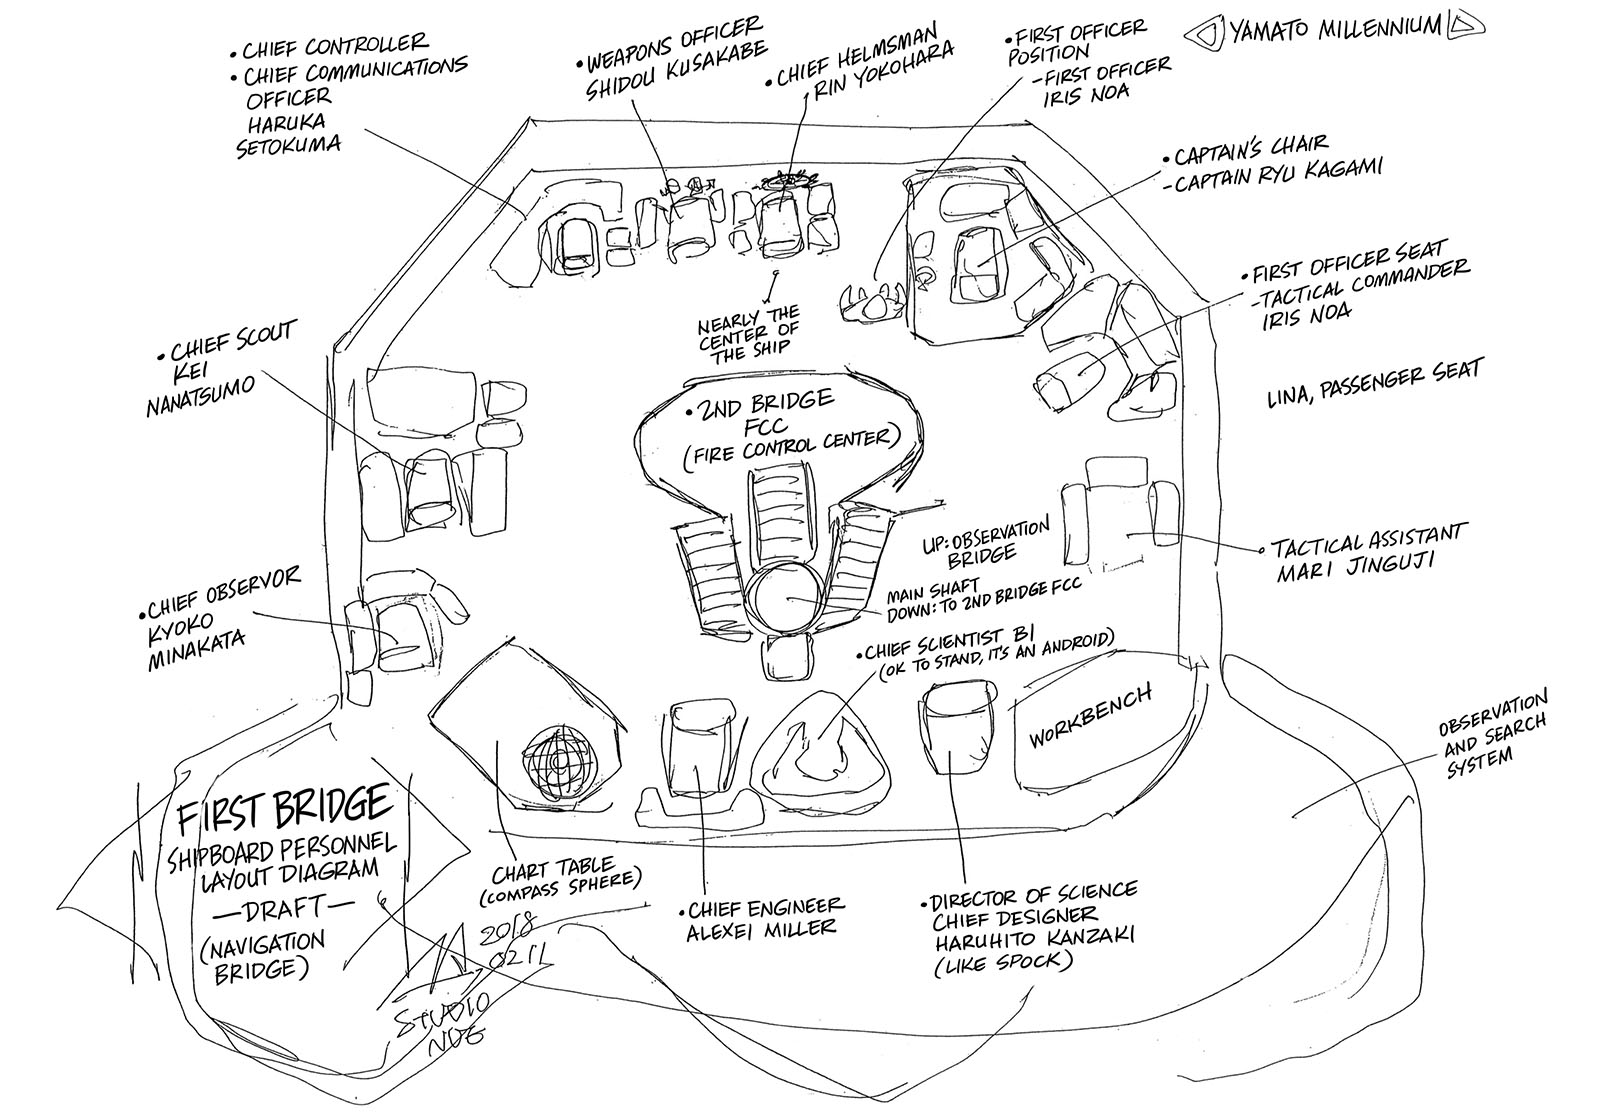 • CHIEF CONTROLLER
• CHIEF COMMUNICATIONS
OFFICER
HARUKA
SETOKUMA
• WEAPONS OFFICER
SHIDOU KUSAKABE
• CHIEF HELMSMAN
RIN YOKOHARA
• FIRST OFFICER
POSITION
- FIRST OFFICER
IRIS NOA
YAMATO MILLENNIUM
• CAPTAIN'S CHAIR
- CAPTAIN RYU KAGAMI
• FIRST OFFICER SEAT
- TACTICAL COMMANDER
IRIS NOA
LINA, PASSENGER SEAT
NEARLY THE
CENTER OF
THE SHIP
• CHIEF SCOUT
KEI
NANATSUMO
• 2ND BRIDGE
FCC
(FIRE CONTROL CENTER)
UP: OBSERVATION
BRIDGE
MAIN SHAFT
DOWN: TO 2ND BRIDGE FCC
• TACTICAL ASSISTANT
MARI JINGUJI
• CHIEF OBSERVOR
KYOKO
MINAKATA
• CHIEF SCIENTIST B1
(OK TO STAND, IT'S AN ANDROID)
WORKBENCH
OBSERVATION
AND SEARCH
SYSTEM
FIRST BRIDGE
SHIPBOARD PERSONNEL
LAYOUT DIAGRAM
—DRAFT—
(NAVIGATION
BRIDGE)
CHART TABLE
(COMPASS SPHERE)
• CHIEF ENGINEER
ALEXEI MILLER
• DIRECTOR OF SCIENCE
CHIEF DESIGNER
HARUHITO KANZAKI
(LIKE SPOCK)
2018
0211
STUDIO
NUE